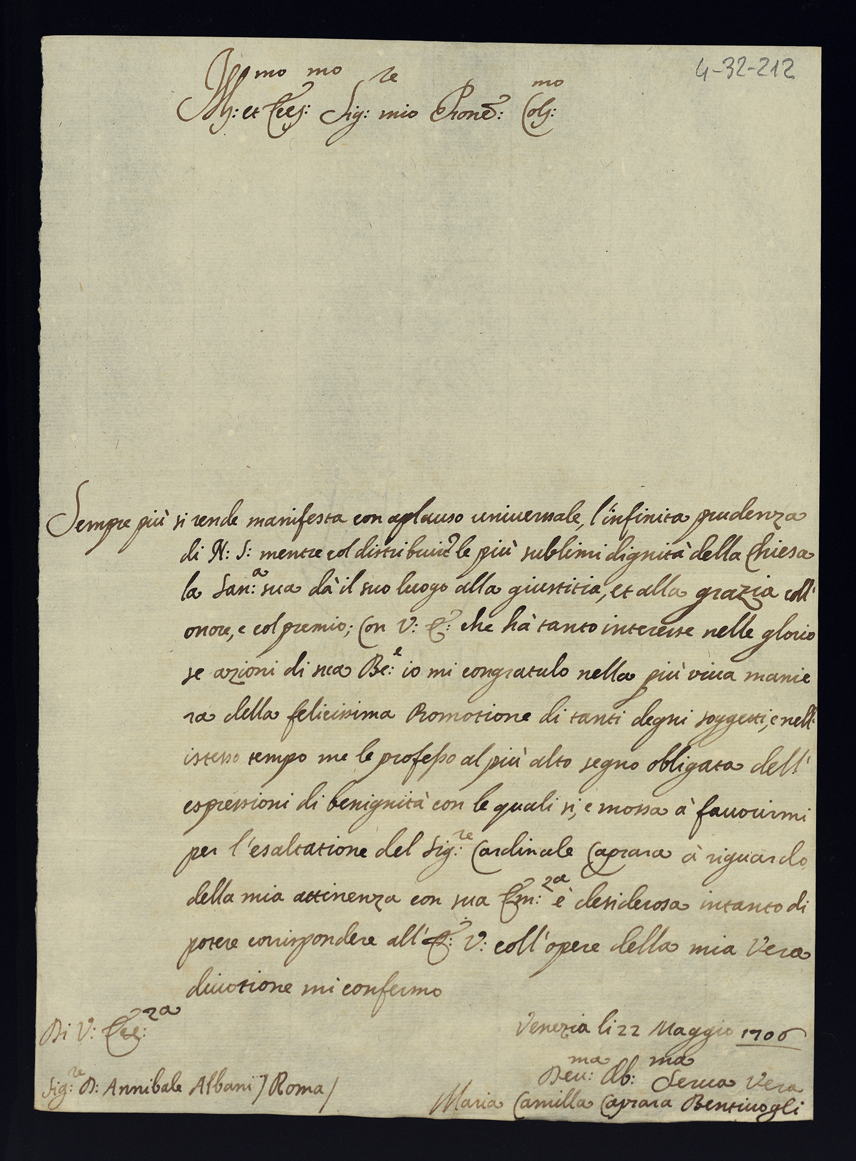 4-32-212
Ill:mo et Ecc:mo Sig:re mio Prone: Col:mo
Sempre più si rende manifesta con aplauso universale, l'infinita prudenza
di N: S: mentre col distribuire le più sublimi dignità della Chiesa
la San:a sua dà il suo luogo alla giustitia, et alla grazia coll'
onore, e col premio; Con V: E: che hà tanto interesse nelle glorio
se azioni di sua Be:e io mi congratulo nella più viva manie
ra della felicissima Promotione di tanti degni soggetti, e nell'
istesso tempo me le professo al più alto segno obligata dell'
espressioni di benignità con le quali si, e mossa à favorirmi
per l'esaltatione del Sig:re Cardinale Caprara à riguardo
della mia attinenza con sua Em:za è desiderosa intanto di
potere corrispondere all'E: V: coll'opere della mia Vera
divotione mi confermo
Di V: Ecc:za
Venezia li 22 Maggio 1706
Dev:ma Ob:ma Serva Vera
Sig:re D: Annibale Albani / Roma /
Maria Camilla Caprara Bentivogli